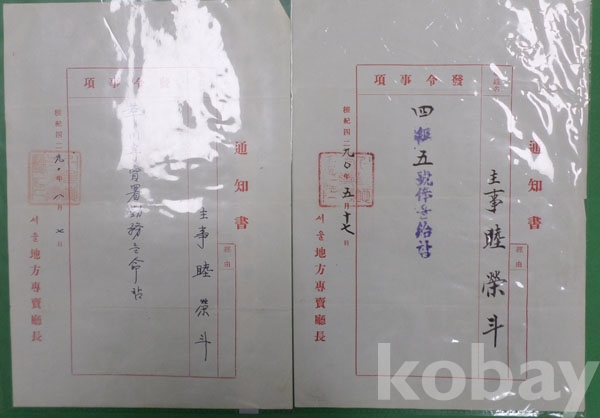 通知書
主事 睦榮斗
發令事項
署勤務를命함
檀紀四二九〇年八月七日
서울地方專賣廳長
通知書
經由
主事 睦榮斗
發令事項
四級五號俸를給함
檀紀四二九〇年五月十七日
서울地方專賣廳長
kobay